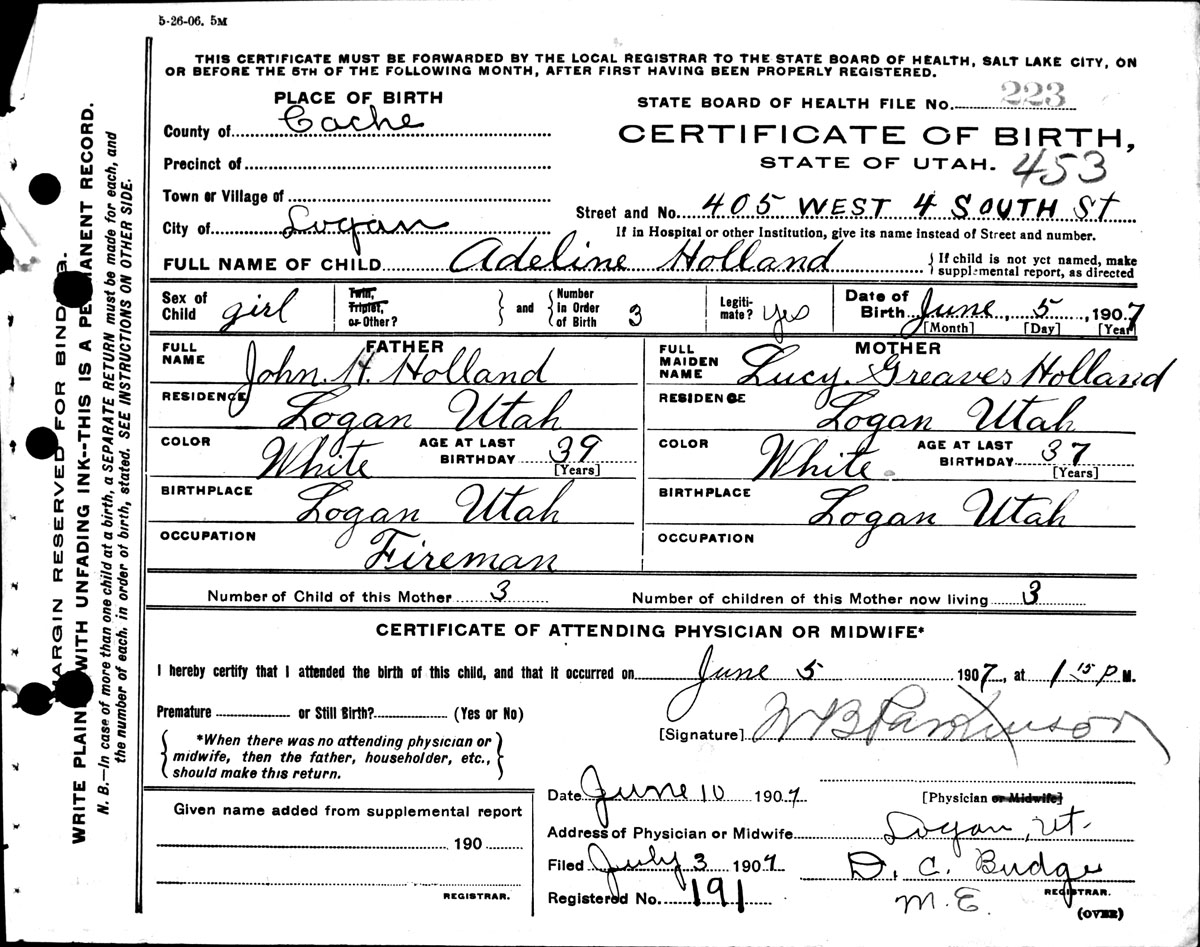 5-26-06. 5M
THIS CERTIFICATE MUST BE FORWARDED BY THE LOCAL REGISTRAR TO THE STATE BOARD OF HEALTH, SALT LAKE CITY, ON
OR BEFORE THE 5TH OF THE FOLLOWING MONTH, AFTER FIRST HAVING BEEN PROPERLY REGISTERED.
PLACE OF BIRTH
County of Cache
Precinct of
Town or Village of
City of Logan
STATE BOARD OF HEALTH FILE No. 223
CERTIFICATE OF BIRTH,
STATE OF UTAH. 453
Street and No. 405 WEST 4 SOUTH St
If in Hospital or other Institution, give its name instead of Street and number.
FULL NAME OF CHILD Adeline Holland
If child is not yet named, make
supplemental report, as directed
Sex of Child girl
Twin, Triplet, or Other? and Number In Order of Birth 3
Legiti-mate? yes
Date of Birth June 5, 1907
[Month] [Day] [Year]
FATHER
FULL NAME John. H. Holland
RESIDENCE Logan Utah
COLOR White AGE AT LAST BIRTHDAY 39 [Years]
BIRTHPLACE Logan Utah
OCCUPATION Fireman
MOTHER
FULL MAIDEN NAME Lucy. Greaves Holland
RESIDENCE Logan Utah
COLOR White. AGE AT LAST BIRTHDAY 37 [Years]
BIRTHPLACE Logan Utah
OCCUPATION
Number of Child of this Mother 3 Number of children of this Mother now living 3
CERTIFICATE OF ATTENDING PHYSICIAN OR MIDWIFE*
I hereby certify that I attended the birth of this child, and that it occurred on June 5 1907, at 1 15 P M.
Premature or Still Birth? (Yes or No)
*When there was no attending physician or
midwife, then the father, householder, etc.,
should make this return.
[Signature] W B Parkinson
[Physician or Midwife]
Given name added from supplemental report
190
REGISTRAR.
Date June 10 1907
Address of Physician or Midwife Logan, Ut.
Filed July 3 1907 D. C. Budge
REGISTRAR.
Registered No. 191 M.E.
(OVER)
MARGIN RESERVED FOR BINDING.
WRITE PLAINLY WITH UNFADING INK--THIS IS A PERMANENT RECORD.
N. B.—In case of more than one child at a birth, a SEPARATE RETURN must be made for each, and
the number of each, in order of birth, stated. SEE INSTRUCTIONS ON OTHER SIDE.